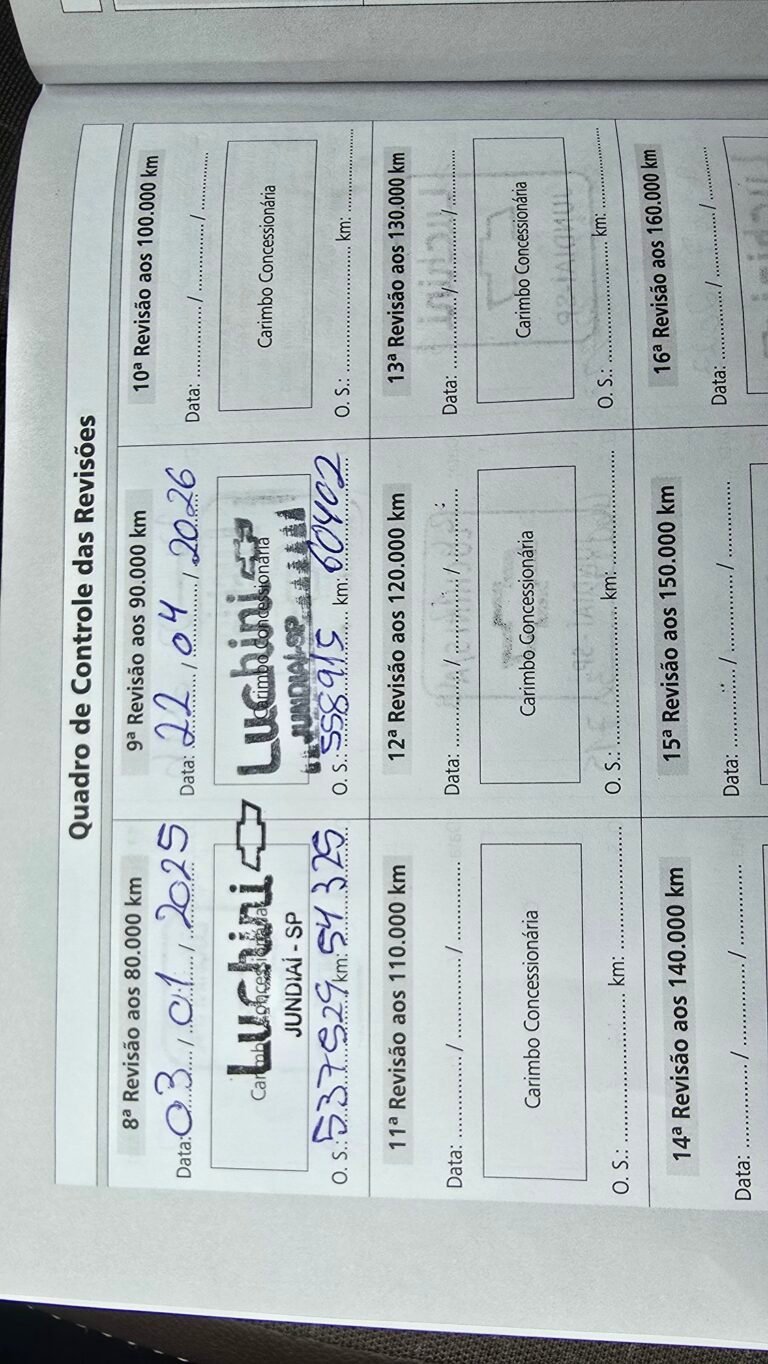 Quadro de Controle das Revisões
8ª Revisão aos 80.000 km
Data: 03 / 01 / 2025
Carimbo Concessionária
Luchini
JUNDIAÍ - SP
O. S.: 537529 km: 54325
9ª Revisão aos 90.000 km
Data: 22 / 04 / 2026
Carimbo Concessionária
Luchini
JUNDIAÍ-SP
O. S.: 558915 km: 60402
10ª Revisão aos 100.000 km
Data: ............ / ............ / ............
Carimbo Concessionária
O. S.: ........................ km: ....................
11ª Revisão aos 110.000 km
Data: ............ / ............ / ............
Carimbo Concessionária
O. S.: ........................ km: ....................
12ª Revisão aos 120.000 km
Data: ............ / ............ / ............
Carimbo Concessionária
O. S.: ........................ km: ....................
13ª Revisão aos 130.000 km
Data: ............ / ............ / ............
Carimbo Concessionária
O. S.: ........................ km: ....................
14ª Revisão aos 140.000 km
Data: ............ / ............ / ............
15ª Revisão aos 150.000 km
Data: ............ / ............ / ............
16ª Revisão aos 160.000 km
Data: ............ / ............ / ............